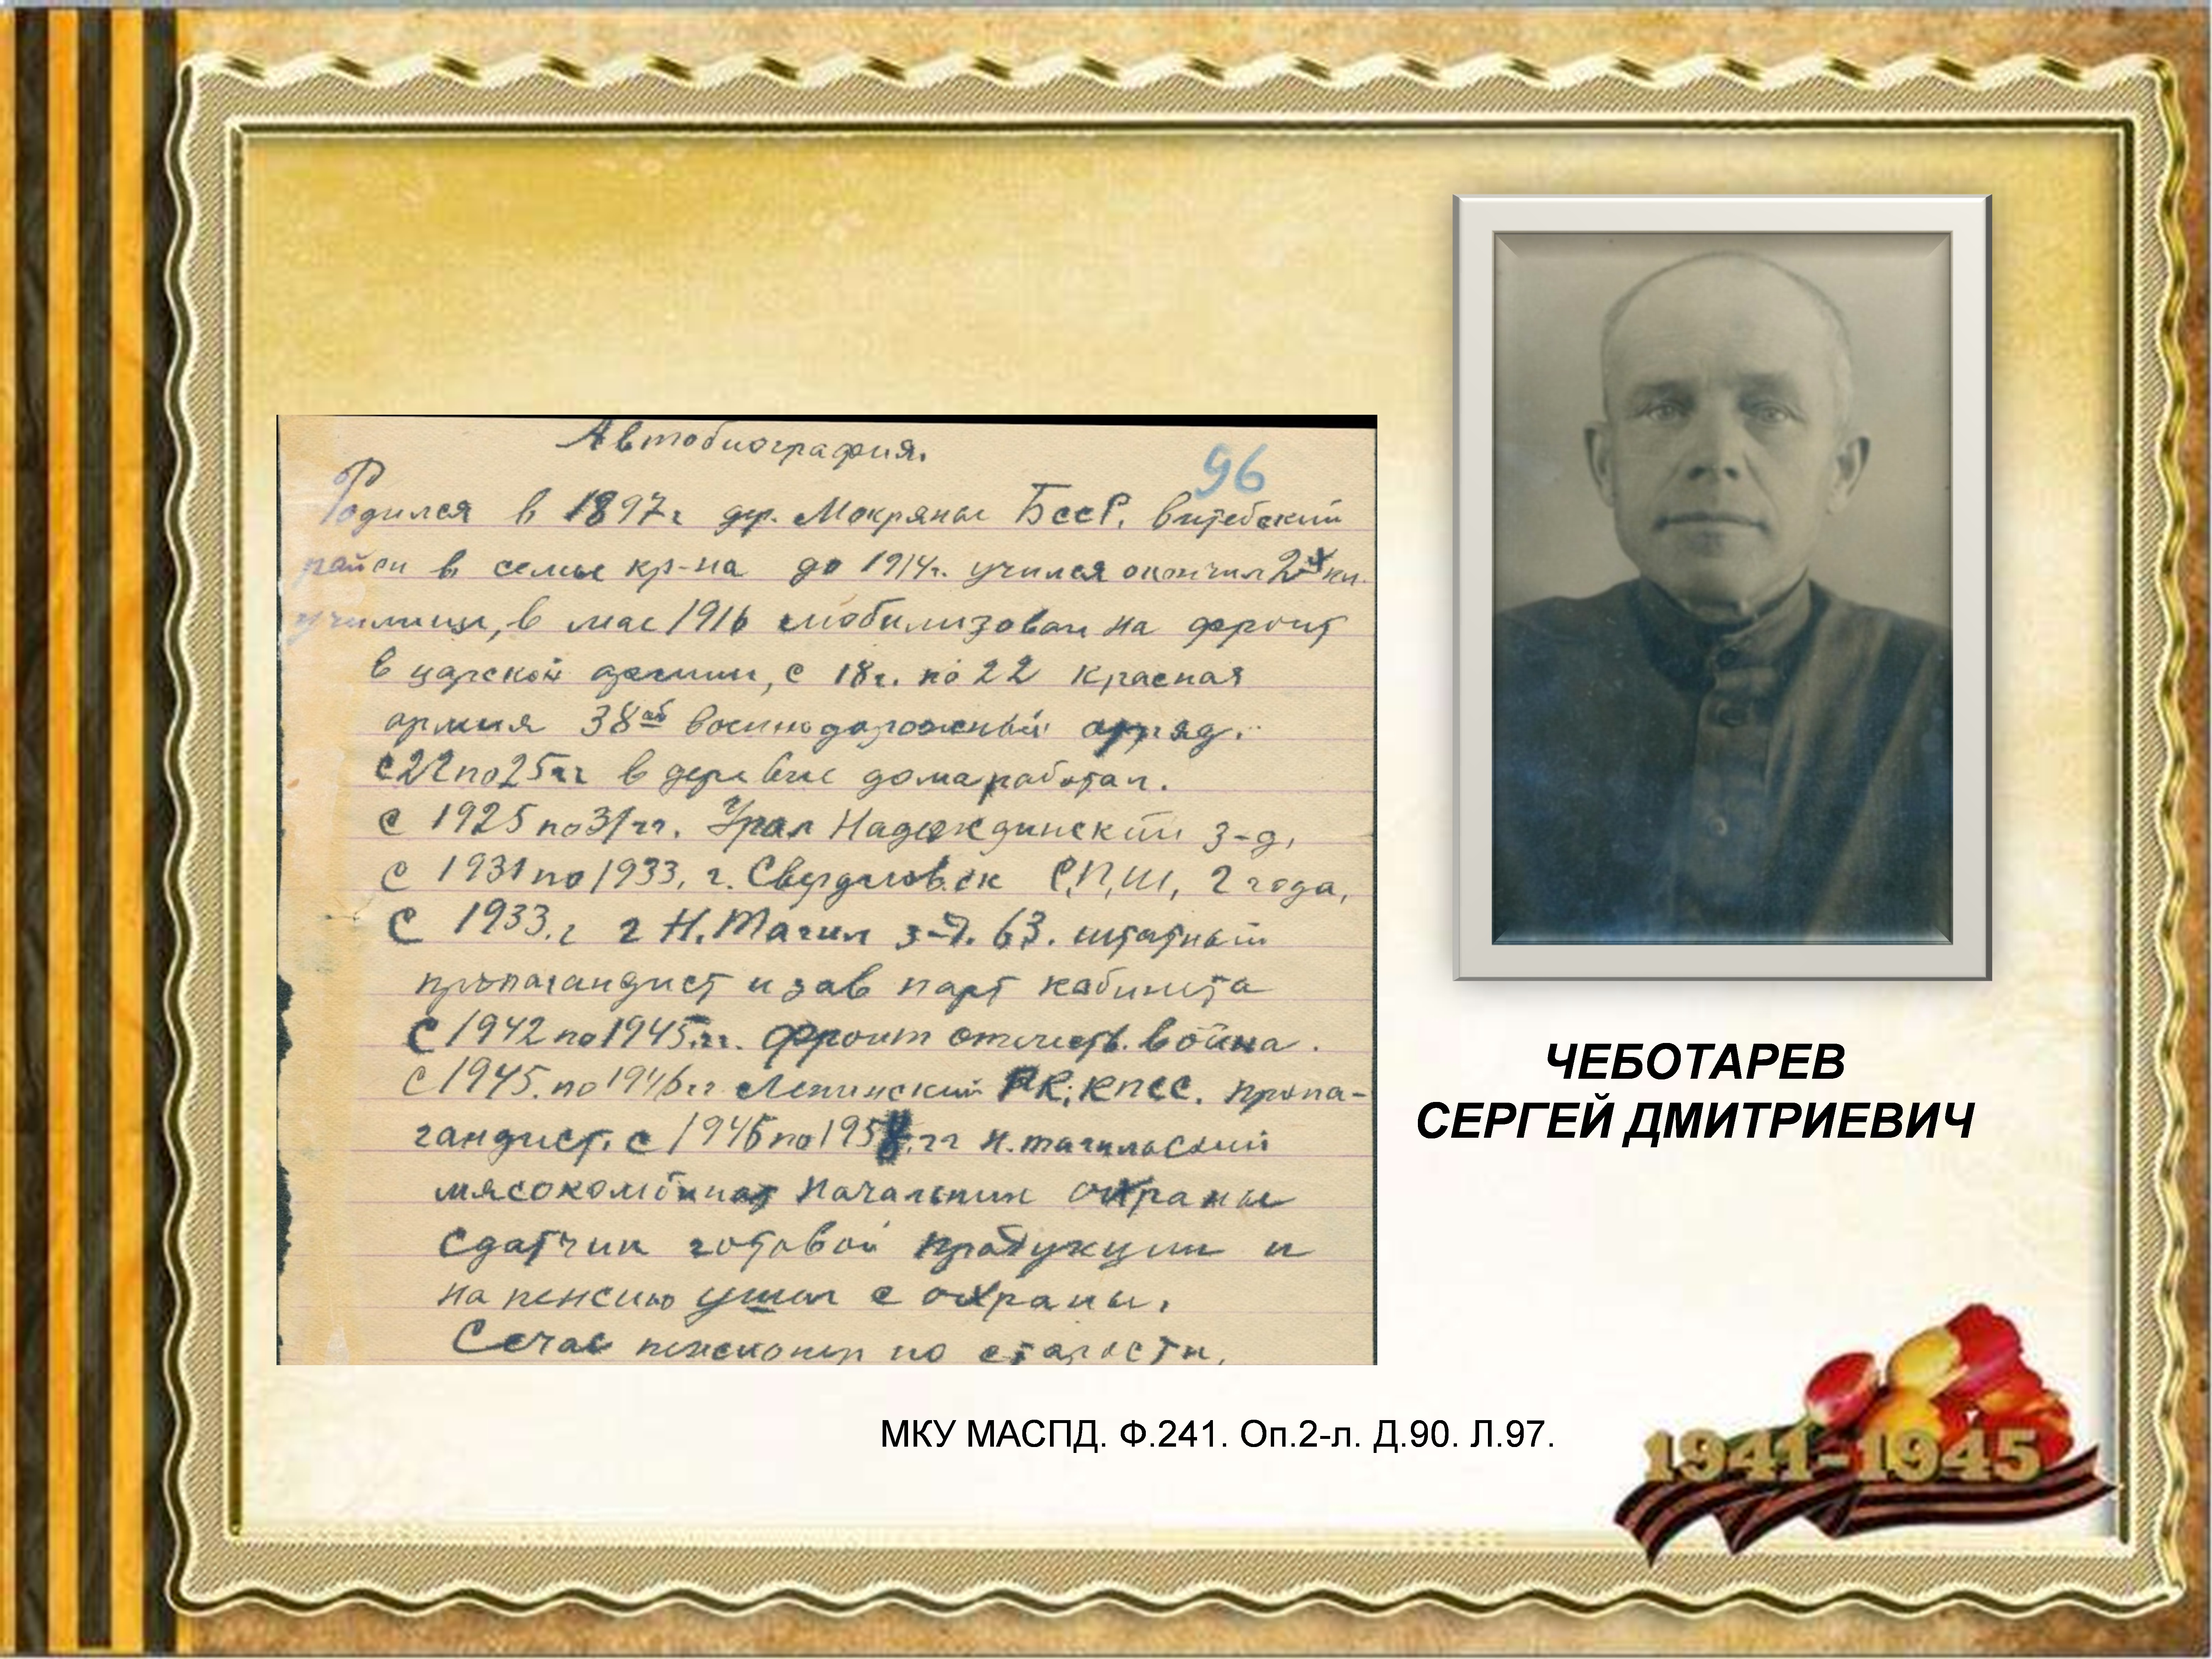 Автобиография.
96
Родился в 1897г дер. Мокряны БссР. Витебский
район в семье кр-на до 1914г. учился окончил 2х кл.
училище, в мае 1916 мобилизован на фронт
в царской армии, с 18г. по 22 Красная
армия 38ой военнодорожный отряд.
с 22 по 25гг в деревне дома работал.
с 1925 по 31гг. Урал Надеждинский з-д,
с 1931 по 1933, г. Свердловск С,П,Ш, 2 года,
С 1933.г г Н.Тагил з-д. 63. штатный
пропагандист и зав парт кабинета
С 1942 по 1945.гг. фронт отечеств. война.
с 1945. по 1946гг Ленинский РК; КПСС. пропа-
гандист. с 1946 по 1958.гг Н.тагильский
мясокомбинат Начальник охраны
Сдатчик готовой продукции и
на пенсию ушол с охраны.
Сечас пенсионер по старости,
ЧЕБОТАРЕВ
СЕРГЕЙ ДМИТРИЕВИЧ
МКУ МАСПД. Ф.241. Оп.2-л. Д.90. Л.97.
1941-1945